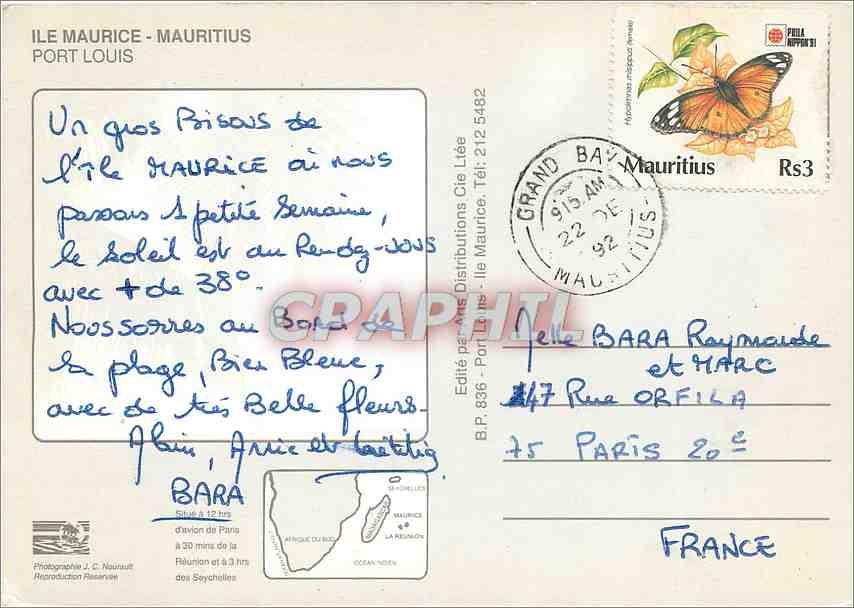 ILE MAURICE - MAURITIUS
PORT LOUIS
Un gros Bisous de
l'île MAURICE où nous
passons 1 petite Semaine,
le soleil est au Rendez-vous
avec + de 38°.
Nous sommes au Bord de
la plage, Bien Bleue,
avec de très Belle fleurs.
Alain, Annie et Laetitia
BARA
Situé à 12 hrs
d'avion de Paris
à 30 mins de la
Réunion et à 3 hrs
des Seychelles
Photographie J. C. Nourault
Reproduction Reservée
AFRIQUE DU SUD
MADAGASCAR
SEYCHELLES
MAURICE
LA REUNION
OCEAN INDIEN
Edité par Arts Distributions Cie Ltée
B.P. 836 - Port Louis - Ile Maurice. Tél: 212 5482
Hypolimnas misippus (female)
PHILA
NIPPON '91
Mauritius Rs3
GRAND BAY
915 AM
22 DE
92
MAURITIUS
CPAPHIL
Melle BARA Raymonde
et MARC
47 Rue ORFILA
75 PARIS 20e
FRANCE